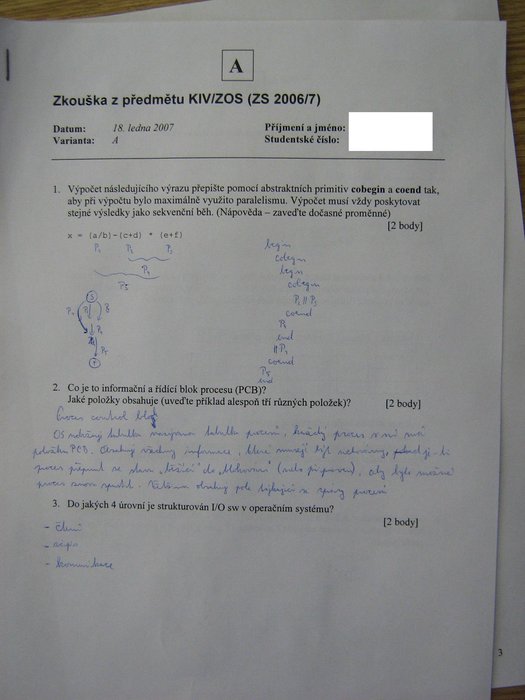 A
Zkouška z předmětu KIV/ZOS (ZS 2006/7)
Datum: 18. ledna 2007 Příjmení a jméno:
Varianta: A Studentské číslo:
1. Výpočet následujícího výrazu přepište pomocí abstraktních primitiv cobegin a coend tak,
aby při výpočtu bylo maximálně využito paralelismu. Výpočet musí vždy poskytovat
stejné výsledky jako sekvenční běh. (Nápověda – zaveďte dočasné proměnné)
[2 body]
x = (a/b)-(c+d) * (e+f)
P1 P2 P3
P4
P5
begin
cobegin
begin
cobegin
P2 || P3
coend
P4
end
|| P1
coend
P5
end
2. Co je to informační a řídící blok procesu (PCB)?
Jaké položky obsahuje (uveďte příklad alespoň tří různých položek)? [2 body]
Proces control blok
OS udržuje tabulku nazývanou tabulka procesů, každý proces v ní má
položku PCB. Obsahuje všechny informace, které musejí být uchovány, pokud je-li
proces přepnut ze stavu "běžící" do "blokovaný" (nebo připraven), aby bylo možné
proces znovu spustit. obsahuje pole týkající se správy procesů
3. Do jakých 4 úrovní je strukturován I/O sw v operačním systému?
[2 body]
- čtení
- zápis
- komunikace
3